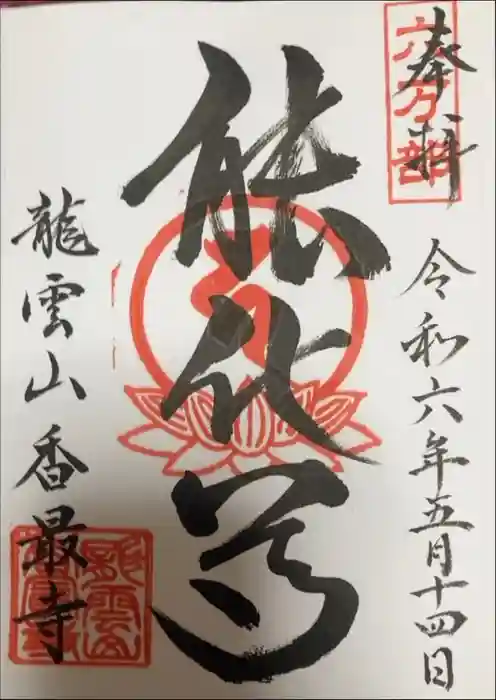 奉拝
六万部
令和六年五月十四日
能化尊
龍雲山 香最寺